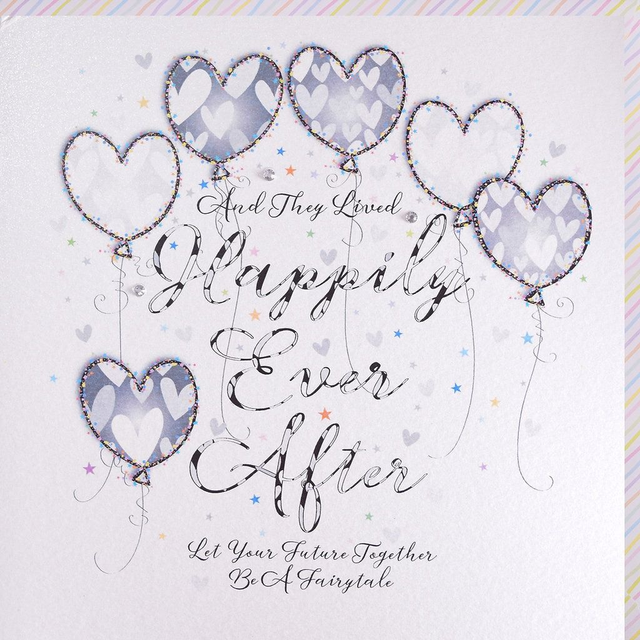 And They Lived
Happily
Ever
After
Let Your Future Together
Be A Fairytale